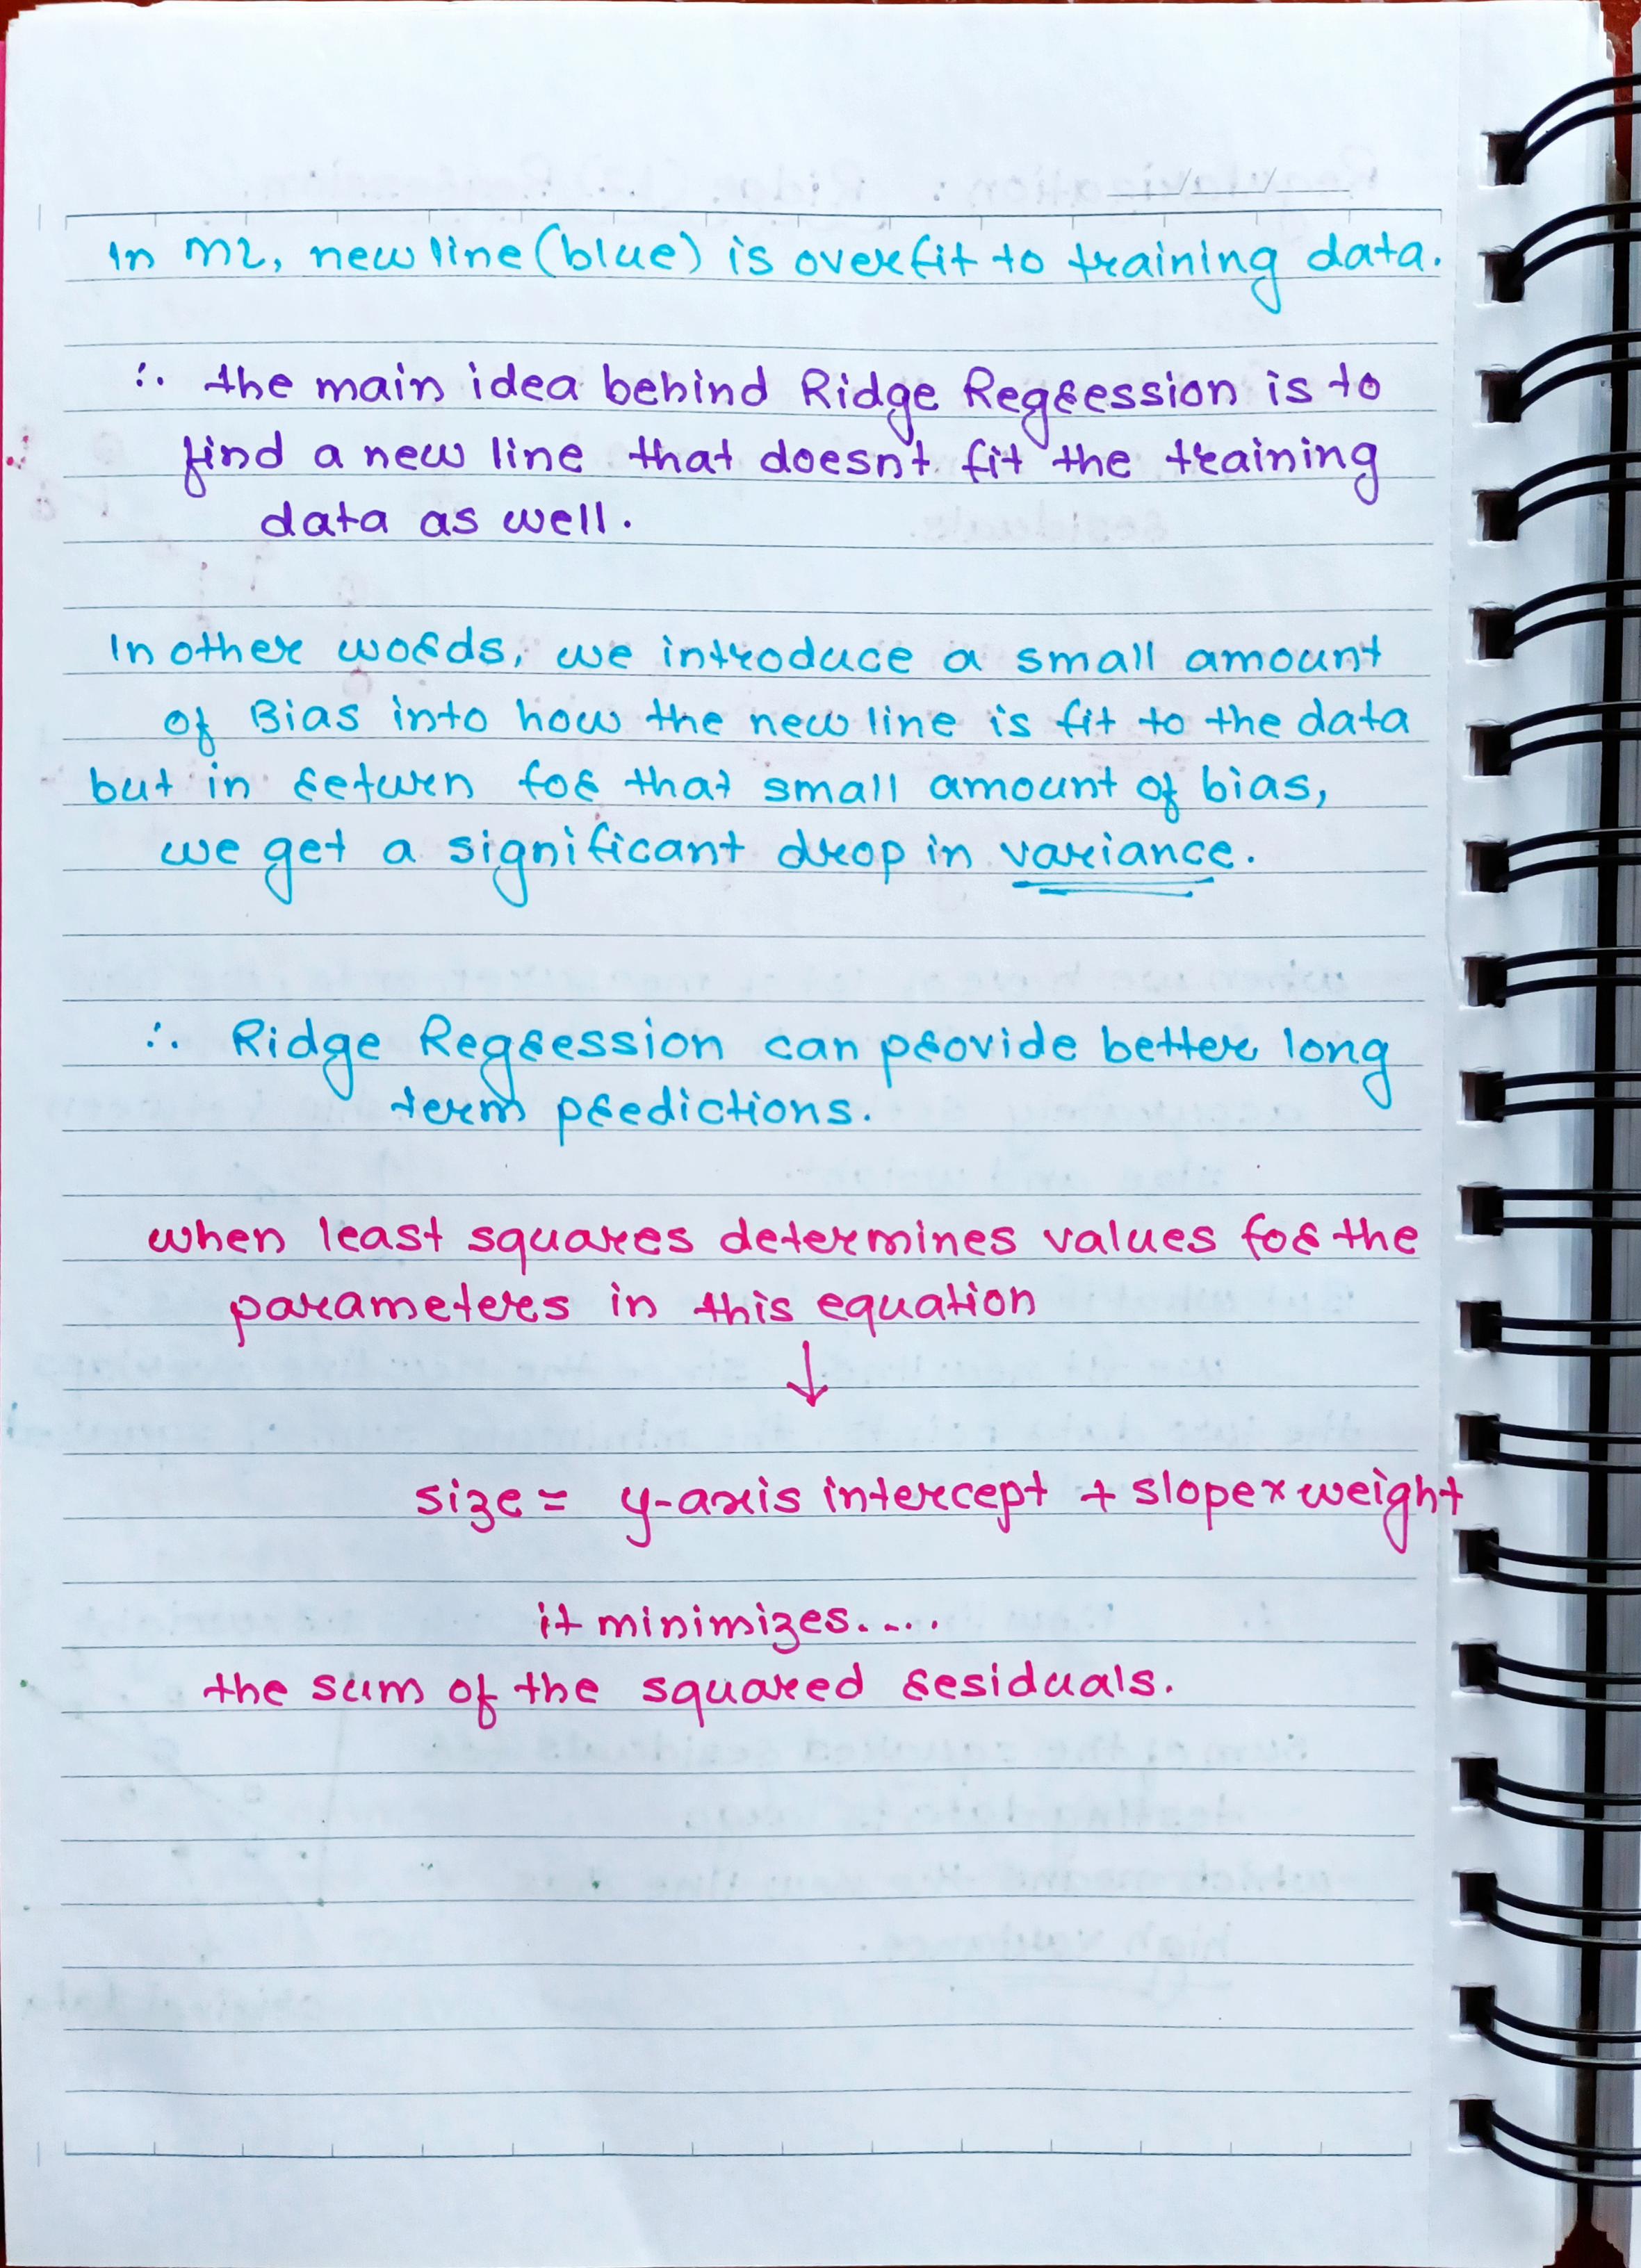 In ML, new line (blue) is overfit to training data.
∴ the main idea behind Ridge Regression is to
find a new line that doesn't fit the training
data as well.
In other words, we introduce a small amount
of Bias into how the new line is fit to the data
but in return for that small amount of bias,
we get a significant drop in variance.
∴ Ridge Regression can provide better long
term predictions.
when least squares determines values for the
parameters in this equation
↓
size = y-axis intercept + slope × weight
it minimizes....
the sum of the squared residuals.